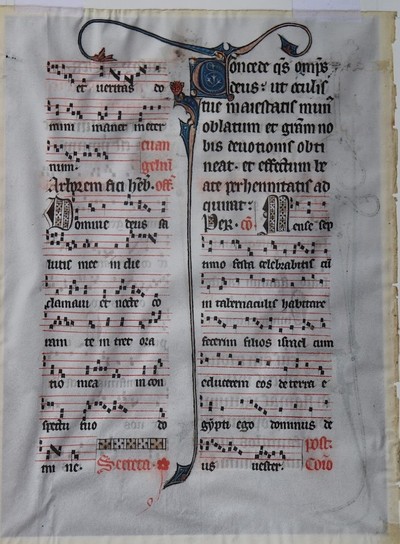 et veritas do
mini manet in eter
num. euan
gelium
Arborem fici heb. off.
Domine deus sa
lutis mee in die
clamaui et nocte co
ram te intret ora
tio mea in con
spectu tuo do
mine. Secreta
Concede q̄s om̄ps
deus: ut oculis
tue maiestatis mun̄
oblatum et gr̄am no
bis deuotionis obti
neat. et effectum be
ate perhennitatis ad
quirat.
Per. cō. Mense sep
timo festa celebrabitis cū
in tabernaculis habitare
fecerim filios israel cum
educerem eos de terra e
gypti ego dominus de
us vester. post
Com̄o